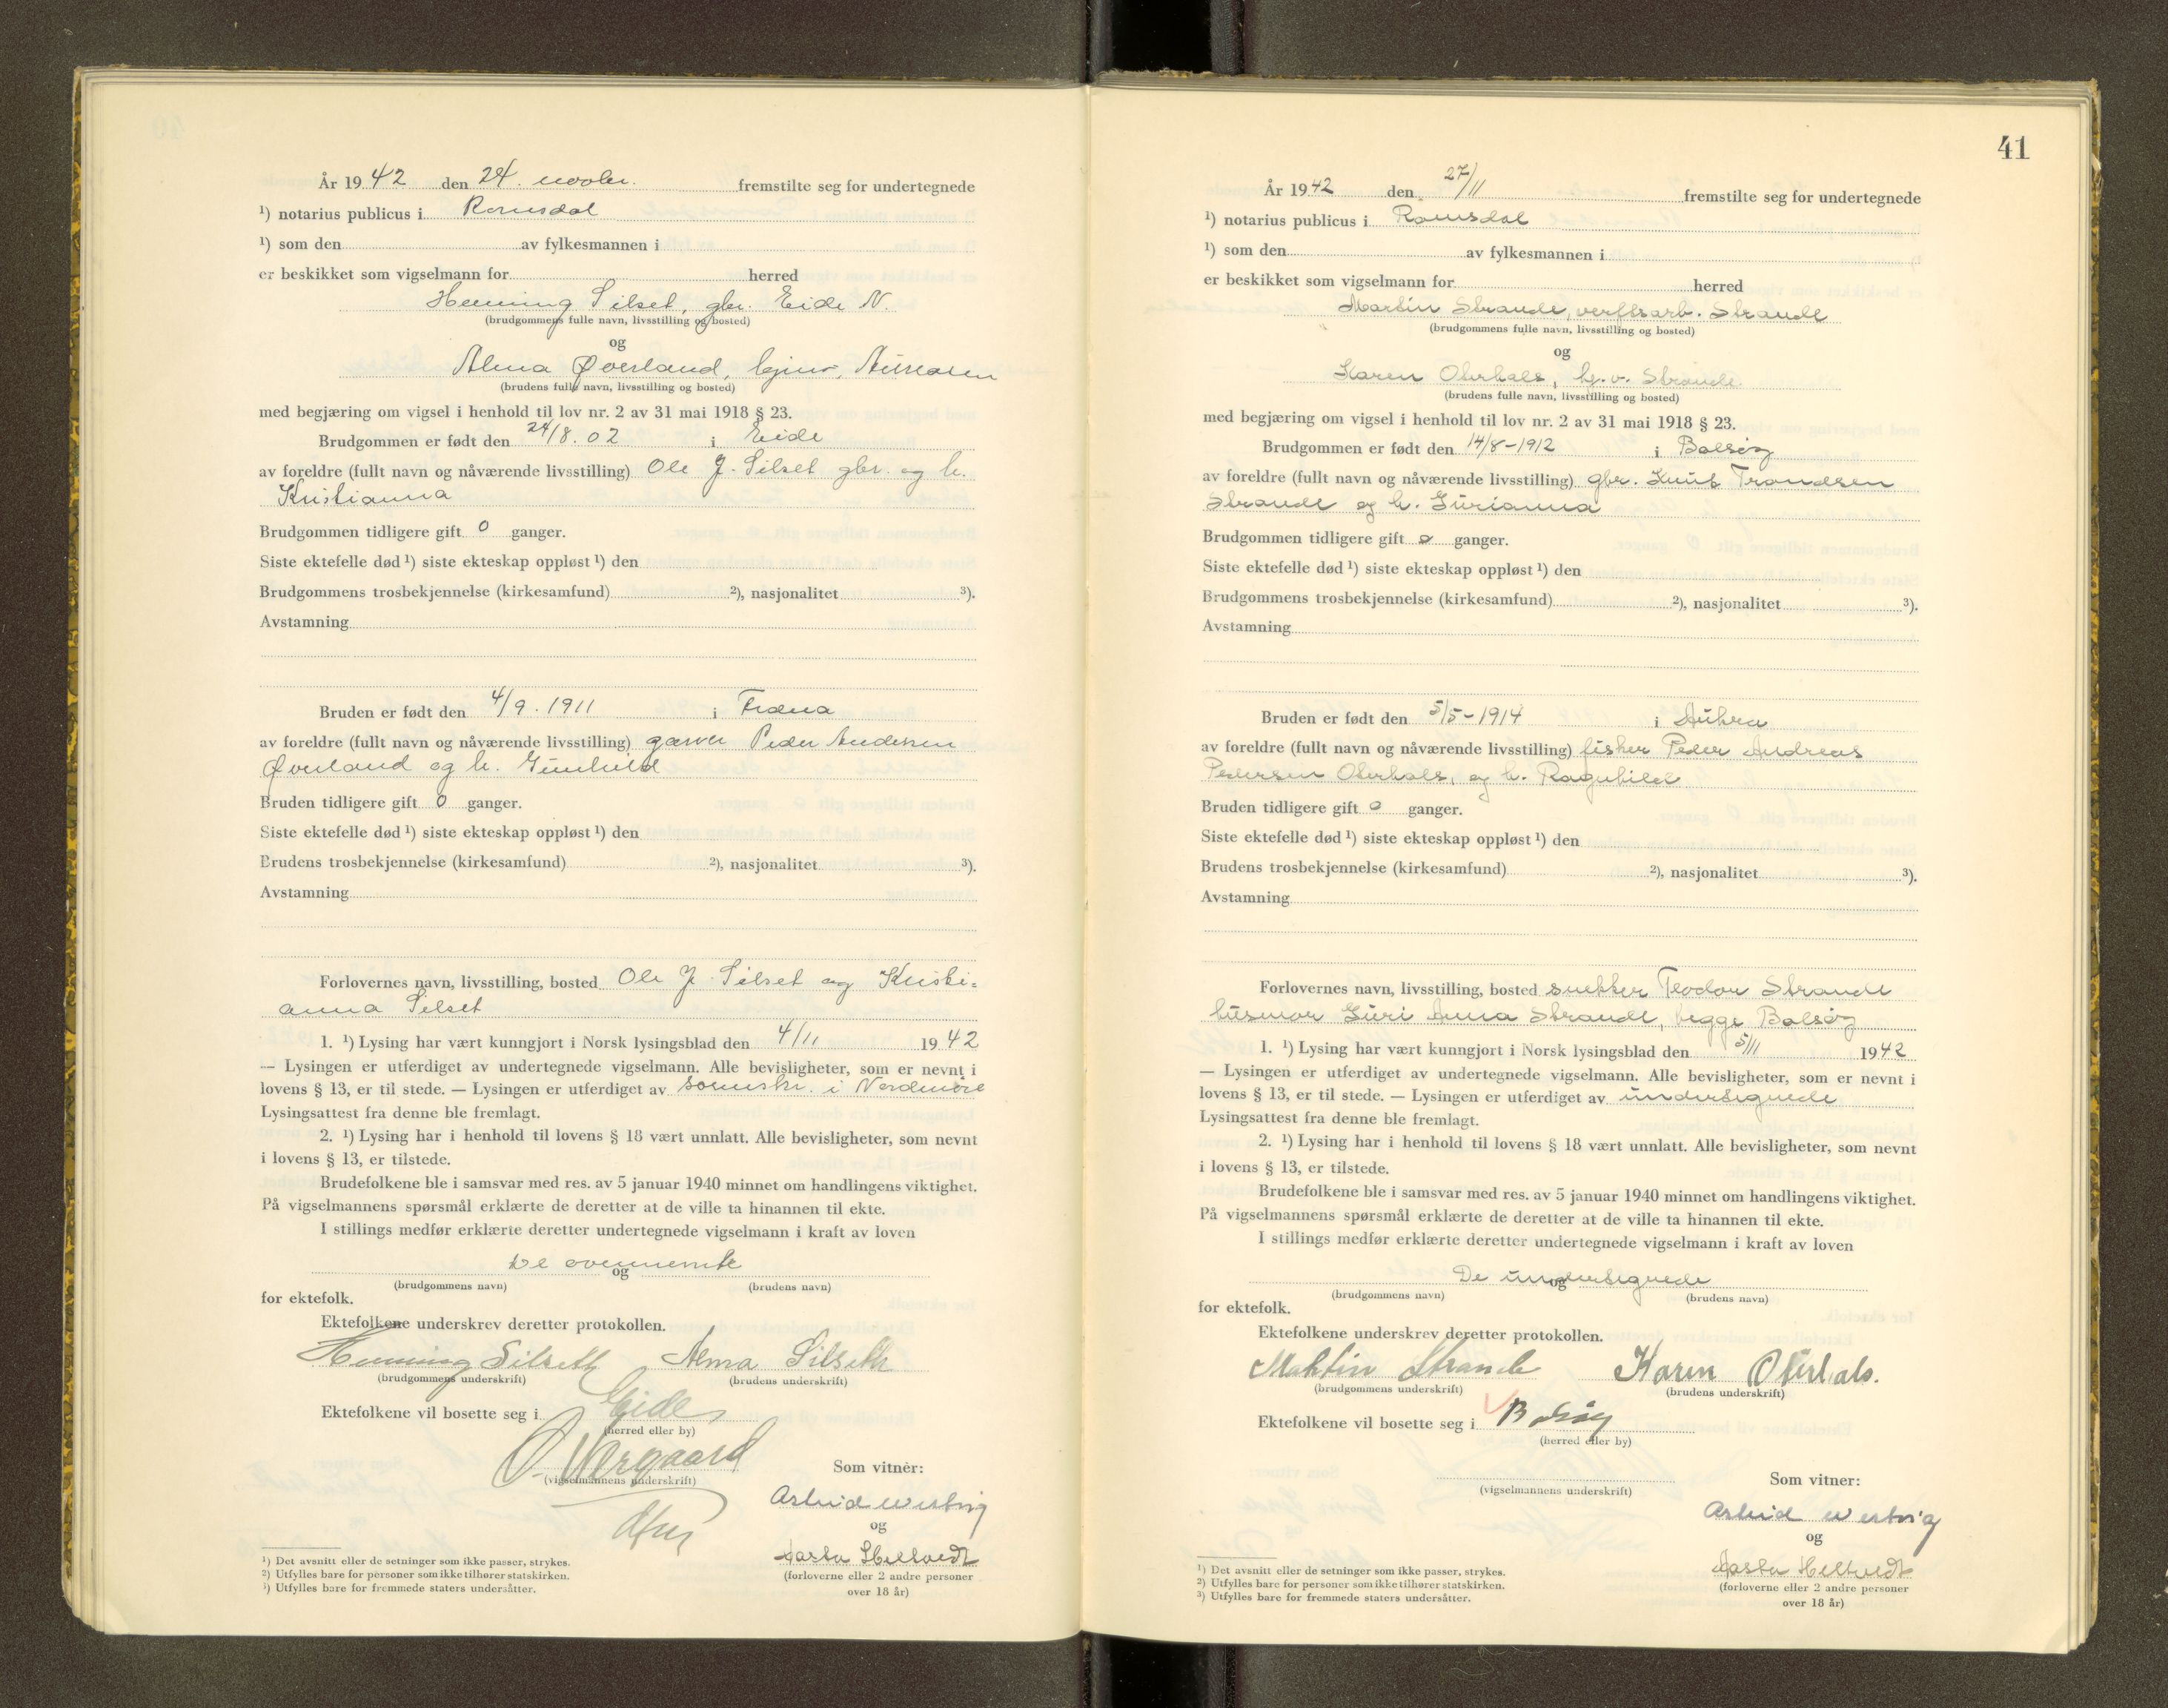 År 1942 den 24. novbr. fremstilte seg for undertegnede
¹) notarius publicus i Romsdal
¹) som den av fylkesmannen i
er beskikket som vigselmann for herred
Henning Silset, gbr. Eide N.
(brudgommens fulle navn, livsstilling og bosted)
og
Alma Øverland, hjmv, Aureosen
(brudens fulle navn, livsstilling og bosted)
med begjæring om vigsel i henhold til lov nr. 2 av 31 mai 1918 § 23.
Brudgommen er født den 24/8. 02 i Eide
av foreldre (fullt navn og nåværende livsstilling) Ole J. Silset gbr. og h.
Kristianna
Brudgommen tidligere gift 0 ganger.
Siste ektefelle død ¹) siste ekteskap oppløst ¹) den
Brudgommens trosbekjennelse (kirkesamfund) ²), nasjonalitet ³).
Avstamning
Bruden er født den 4/9. 1911 i Fræna
av foreldre (fullt navn og nåværende livsstilling) garver Peder Andersen
Øverland og h. Gunhild
Bruden tidligere gift 0 ganger.
Siste ektefelle død ¹) siste ekteskap oppløst ¹) den
Brudens trosbekjennelse (kirkesamfund) ²), nasjonalitet ³).
Avstamning
Forlovernes navn, livsstilling, bosted Ole J. Silset og Kristi-
anna Silset
1. ¹) Lysing har vært kunngjort i Norsk lysingsblad den 4/11 1942
— Lysingen er utferdiget av undertegnede vigselmann. Alle bevisligheter, som er nevnt i
lovens § 13, er til stede. — Lysingen er utferdiget av sorenskr. i Nordmøre
Lysingsattest fra denne ble fremlagt.
2. ¹) Lysing har i henhold til lovens § 18 vært unnlatt. Alle bevisligheter, som nevnt
i lovens § 13, er tilstede.
Brudefolkene ble i samsvar med res. av 5 januar 1940 minnet om handlingens viktighet.
På vigselmannens spørsmål erklærte de deretter at de ville ta hinannen til ekte.
I stillings medfør erklærte deretter undertegnede vigselmann i kraft av loven
De ovennevnte
og
(brudgommens navn) (brudens navn)
for ektefolk.
Ektefolkene underskrev deretter protokollen.
Henning Silseth Alma Silseth
(brudgommens underskrift) (brudens underskrift)
Ektefolkene vil bosette seg i Eide
(herred eller by)
(vigselmannens underskrift)
Som vitner:
Astrid Westvig
og
Aasta Heltvedt
(forloverne eller 2 andre personer
over 18 år)
¹) Det avsnitt eller de setninger som ikke passer, strykes.
²) Utfylles bare for personer som ikke tilhører statskirken.
³) Utfylles bare for fremmede staters undersåtter.
41
År 1942 den 27/11 fremstilte seg for undertegnede
¹) notarius publicus i Romsdal
¹) som den av fylkesmannen i
er beskikket som vigselmann for herred
Martin Strande, verftsarb. Strande
(brudgommens fulle navn, livsstilling og bosted)
og
Karen Oterhals, hj.v. Strande
(brudens fulle navn, livsstilling og bosted)
med begjæring om vigsel i henhold til lov nr. 2 av 31 mai 1918 § 23.
Brudgommen er født den 14/8-1912 i Bolsøy
av foreldre (fullt navn og nåværende livsstilling) gbr. Knut Trondsen
Strande og h. Gurianna
Brudgommen tidligere gift 0 ganger.
Siste ektefelle død ¹) siste ekteskap oppløst ¹) den
Brudgommens trosbekjennelse (kirkesamfund) ²), nasjonalitet ³).
Avstamning
Bruden er født den 5/5-1914 i Aukra
av foreldre (fullt navn og nåværende livsstilling) fisker Peder Andreas
Pedersen Oterhals, og h. Ragnhild
Bruden tidligere gift 0 ganger.
Siste ektefelle død ¹) siste ekteskap oppløst ¹) den
Brudens trosbekjennelse (kirkesamfund) ²), nasjonalitet ³).
Avstamning
Forlovernes navn, livsstilling, bosted snekker Teodor Strande
husmor Guri Anna Strande, begge Bolsøy
1. ¹) Lysing har vært kunngjort i Norsk lysingsblad den 5/11 1942
— Lysingen er utferdiget av undertegnede vigselmann. Alle bevisligheter, som er nevnt i
lovens § 13, er til stede. — Lysingen er utferdiget av undertegnede
Lysingsattest fra denne ble fremlagt.
2. ¹) Lysing har i henhold til lovens § 18 vært unnlatt. Alle bevisligheter, som nevnt
i lovens § 13, er tilstede.
Brudefolkene ble i samsvar med res. av 5 januar 1940 minnet om handlingens viktighet.
På vigselmannens spørsmål erklærte de deretter at de ville ta hinannen til ekte.
I stillings medfør erklærte deretter undertegnede vigselmann i kraft av loven
De undertegnede
og
(brudgommens navn) (brudens navn)
for ektefolk.
Ektefolkene underskrev deretter protokollen.
Martin Strande Karen Oterhals.
(brudgommens underskrift) (brudens underskrift)
Ektefolkene vil bosette seg i Bolsøy
(herred eller by)
(vigselmannens underskrift)
Som vitner:
Astrid Westvig
og
Aasta Heltvedt
(forloverne eller 2 andre personer
over 18 år)
¹) Det avsnitt eller de setninger som ikke passer, strykes.
²) Utfylles bare for personer som ikke tilhører statskirken.
³) Utfylles bare for fremmede staters undersåtter.